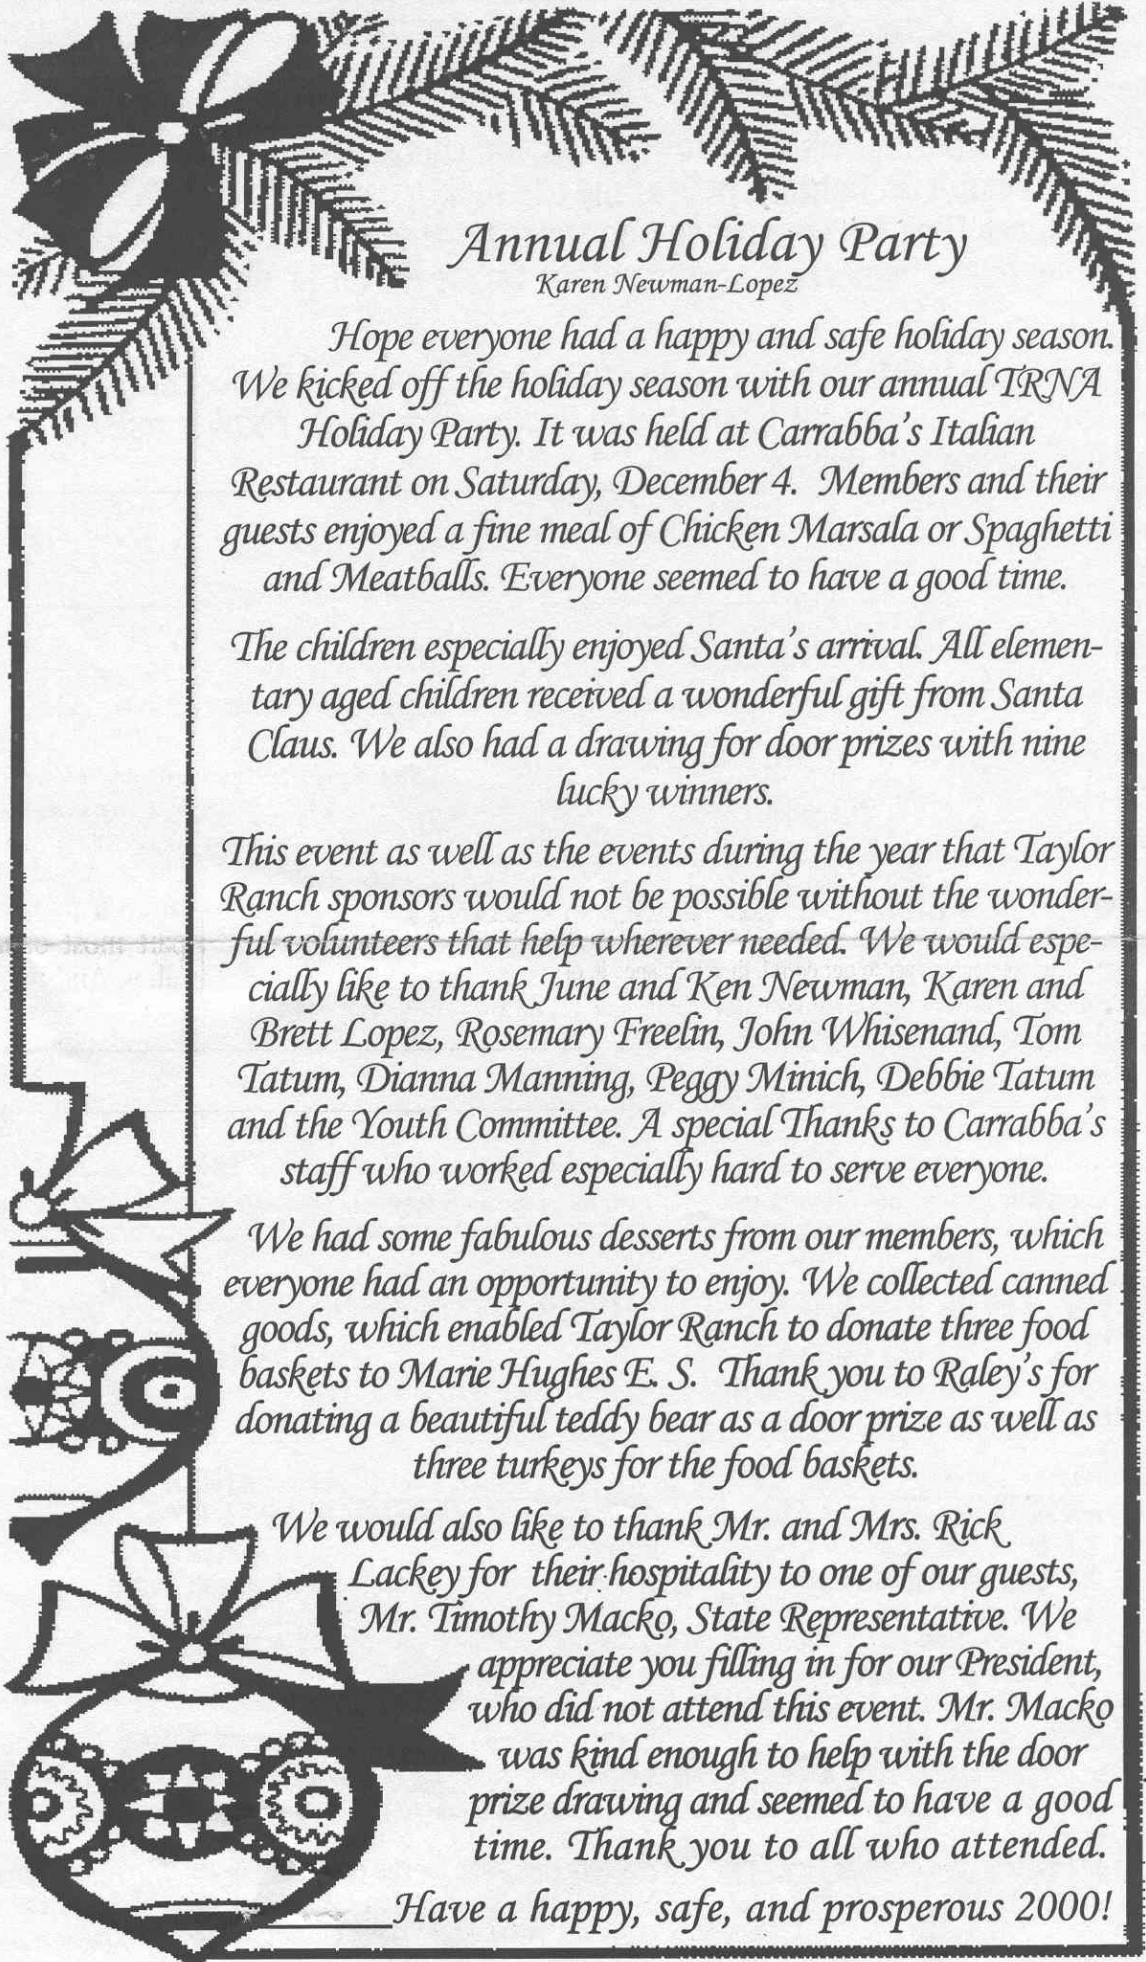 Annual Holiday Party
Karen Newman-Lopez
Hope everyone had a happy and safe holiday season.
We kicked off the holiday season with our annual TRNA
Holiday Party. It was held at Carrabba's Italian
Restaurant on Saturday, December 4. Members and their
guests enjoyed a fine meal of Chicken Marsala or Spaghetti
and Meatballs. Everyone seemed to have a good time.
The children especially enjoyed Santa's arrival. All elemen-
tary aged children received a wonderful gift from Santa
Claus. We also had a drawing for door prizes with nine
lucky winners.
This event as well as the events during the year that Taylor
Ranch sponsors would not be possible without the wonder-
ful volunteers that help wherever needed. We would espe-
cially like to thank June and Ken Newman, Karen and
Brett Lopez, Rosemary Freelin, John Whisenand, Tom
Tatum, Dianna Manning, Peggy Minich, Debbie Tatum
and the Youth Committee. A special Thanks to Carrabba's
staff who worked especially hard to serve everyone.
We had some fabulous desserts from our members, which
everyone had an opportunity to enjoy. We collected canned
goods, which enabled Taylor Ranch to donate three food
baskets to Marie Hughes E. S. Thank you to Raley's for
donating a beautiful teddy bear as a door prize as well as
three turkeys for the food baskets.
We would also like to thank Mr. and Mrs. Rick
Lackey for their hospitality to one of our guests,
Mr. Timothy Macko, State Representative. We
appreciate you filling in for our President,
who did not attend this event. Mr. Macko
was kind enough to help with the door
prize drawing and seemed to have a good
time. Thank you to all who attended.
Have a happy, safe, and prosperous 2000!